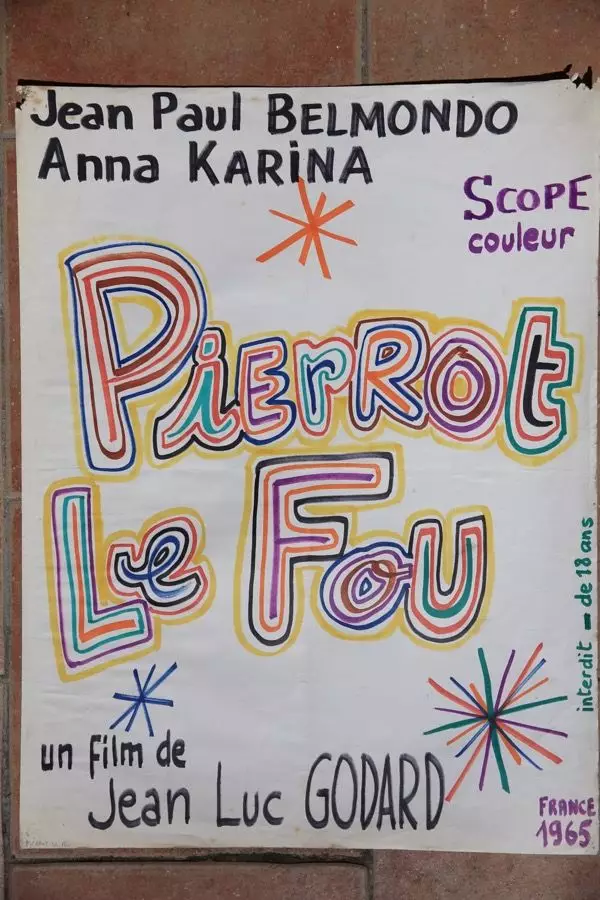 Jean Paul BELMONDO
Anna KARINA
SCOPE
couleur
PIERROt
Le FoU
interdit - de 18 ans
un film de
Jean Luc GODARD
FRANCE
1965